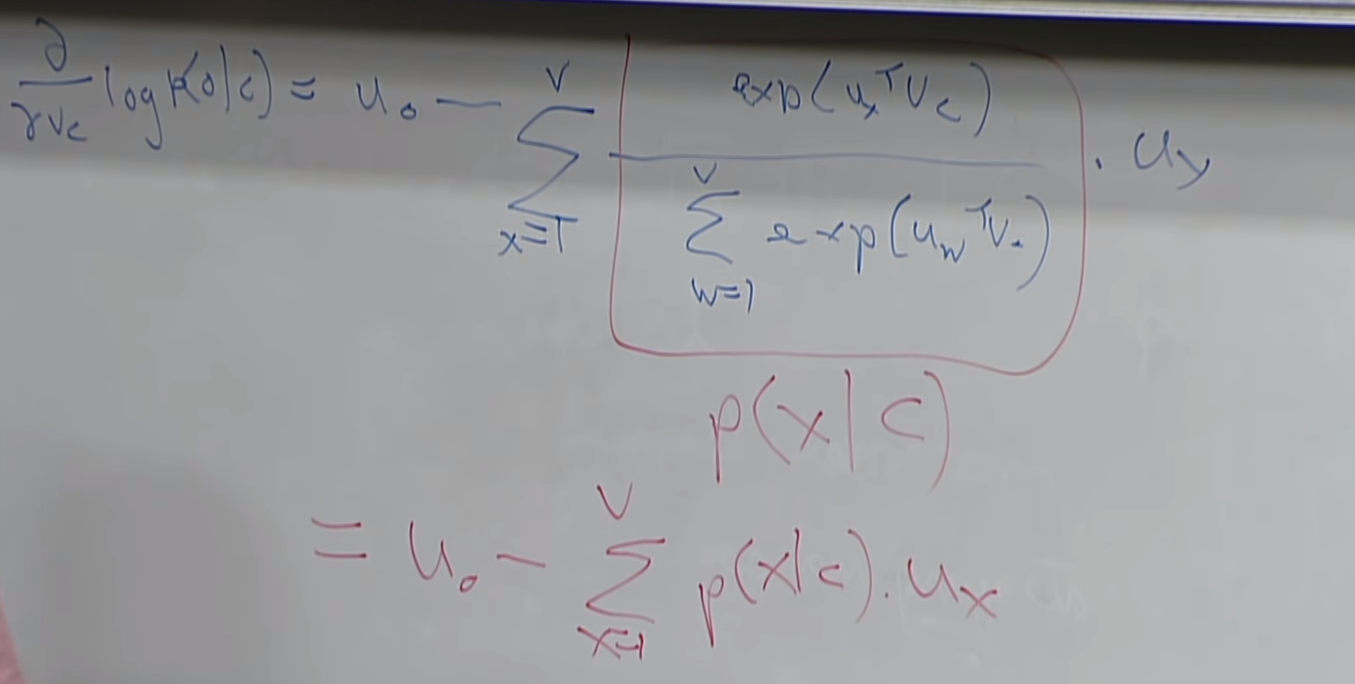 ∂/∂v_c log p(o|c) = u_o − Σ_{x=1}^{V} exp(u_x^T v_c) / Σ_{w=1}^{V} exp(u_w^T v_c) · u_x
p(x|c)
= u_o − Σ_{x=1}^{V} p(x|c) · u_x